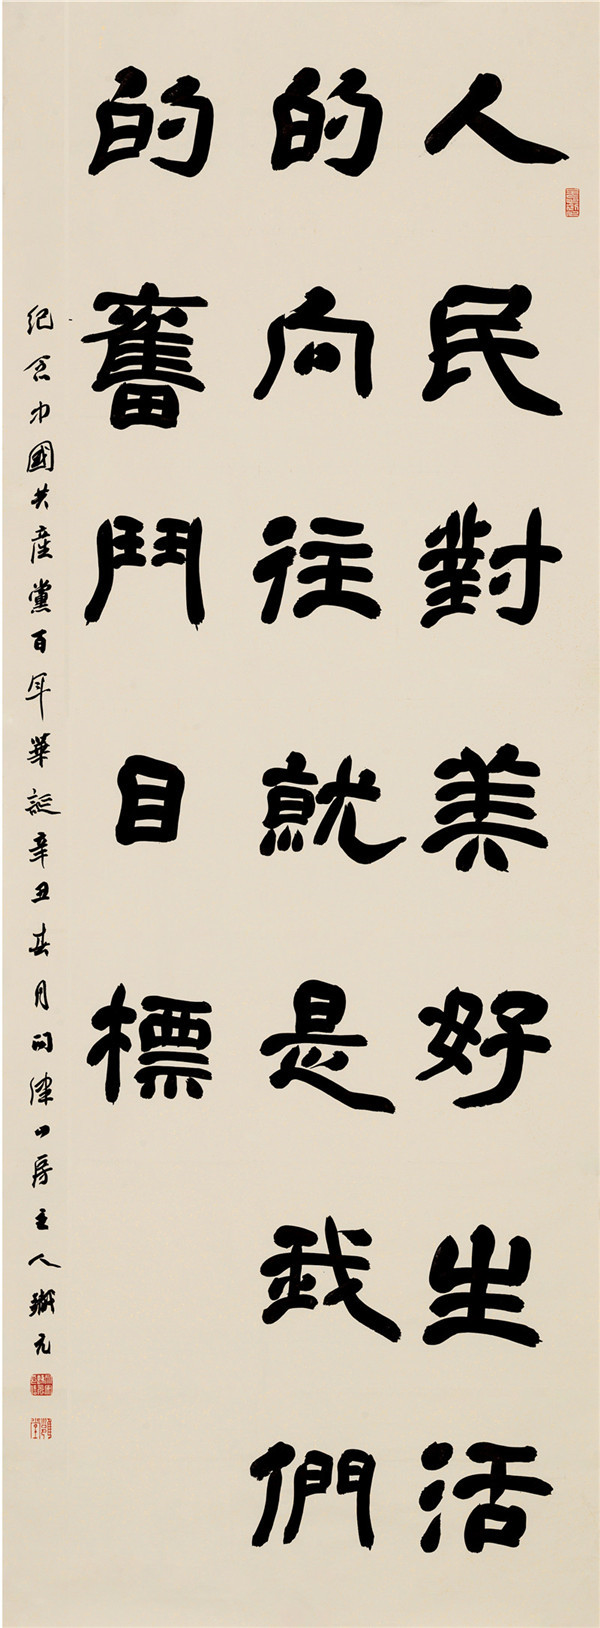 人民對美好生活
的向往就是我們
的奮鬥目標
紀念中國共產黨百年華誕辛丑春月問津山房主人獄元